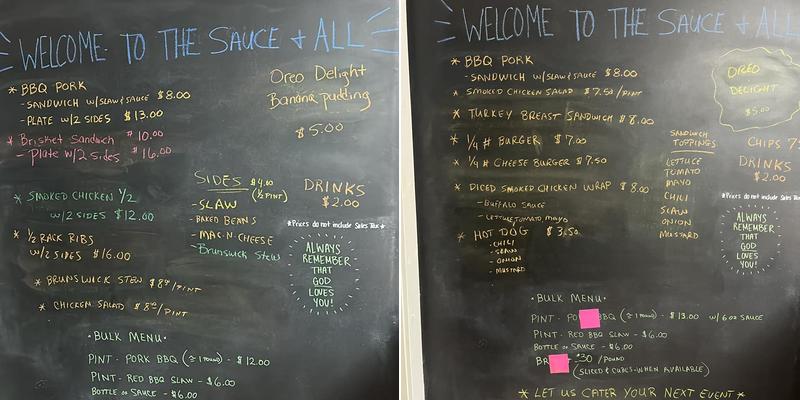 WELCOME TO THE SAUCE & ALL
* BBQ PORK
- SANDWICH W/SLAW & SAUCE $8.00
- PLATE W/2 SIDES $13.00
* Brisket Sandwich $10.00
- Plate w/2 sides $16.00
* SMOKED CHICKEN 1/2
W/2 SIDES $12.00
* 1/2 RACK RIBS
W/2 SIDES $16.00
* BRUNSWICK STEW /PINT
* CHICKEN SALAD /PINT
Oreo Delight
Banana pudding
$5.00
SIDES $4.00
(1/2 PINT)
- SLAW
- BAKED BEANS
- MAC-N-CHEESE
- Brunswick Stew
DRINKS
$2.00
*Prices do not include Sales Tax*
ALWAYS
REMEMBER
THAT
GOD
LOVES
YOU!
· BULK MENU ·
PINT - PORK BBQ (≈ 1 POUND) - $12.00
PINT - RED BBQ SLAW - $6.00
BOTTLE OF SAUCE - $6.00
WELCOME TO THE SAUCE & ALL
* BBQ PORK
- SANDWICH W/SLAW & SAUCE $8.00
* SMOKED CHICKEN SALAD $7.50/PINT
* TURKEY BREAST SANDWICH $8.00
* 1/4 # BURGER $7.00
* 1/4 # CHEESE BURGER $7.50
* DICED SMOKED CHICKEN WRAP $8.00
- BUFFALO SAUCE
- LETTUCE TOMATO MAYO
* HOT DOG $3.50
- CHILI
- SLAW
- ONION
- MUSTARD
OREO
DELIGHT
$5.00
SANDWICH
TOPPINGS
LETTUCE
TOMATO
MAYO
CHILI
SLAW
ONION
MUSTARD
CHIPS 75
DRINKS
$2.00
*Prices do not include Sales Tax*
ALWAYS
REMEMBER
THAT
GOD
LOVES
YOU!
· BULK MENU ·
PINT - PO BBQ (≈ 1 POUND) - $13.00 W/ 6 OZ SAUCE
PINT - RED BBQ SLAW - $6.00
BOTTLE OF SAUCE - $6.00
BR $30 /POUND
(SLICED & CUBES - WHEN AVAILABLE)
* LET US CATER YOUR NEXT EVENT *